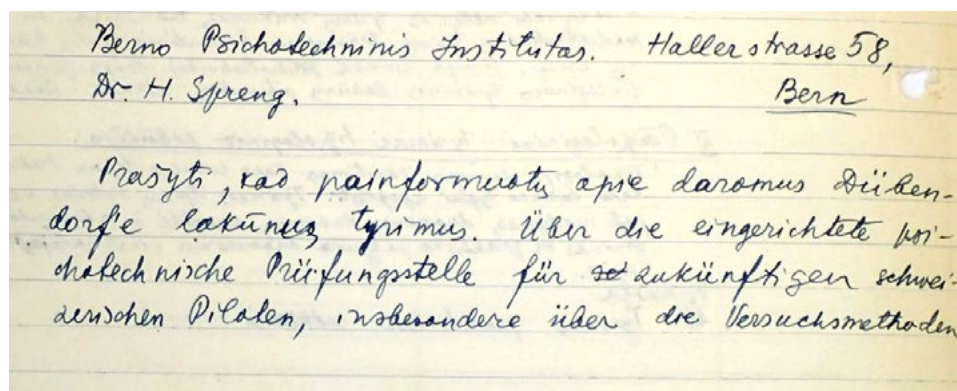 Berno Psichotechninis Institutas. Hallerstrasse 58,
Dr. H. Spreng. Bern
Prašyti, kad painformuotų apie daromus Düben-
dorf'e lakūnų tyrimus. Über die eingerichtete psi-
chotechnische Prüfungsstelle für zukünftigen schwei-
zerischen Piloten, insbesondere über die Versuchsmethoden